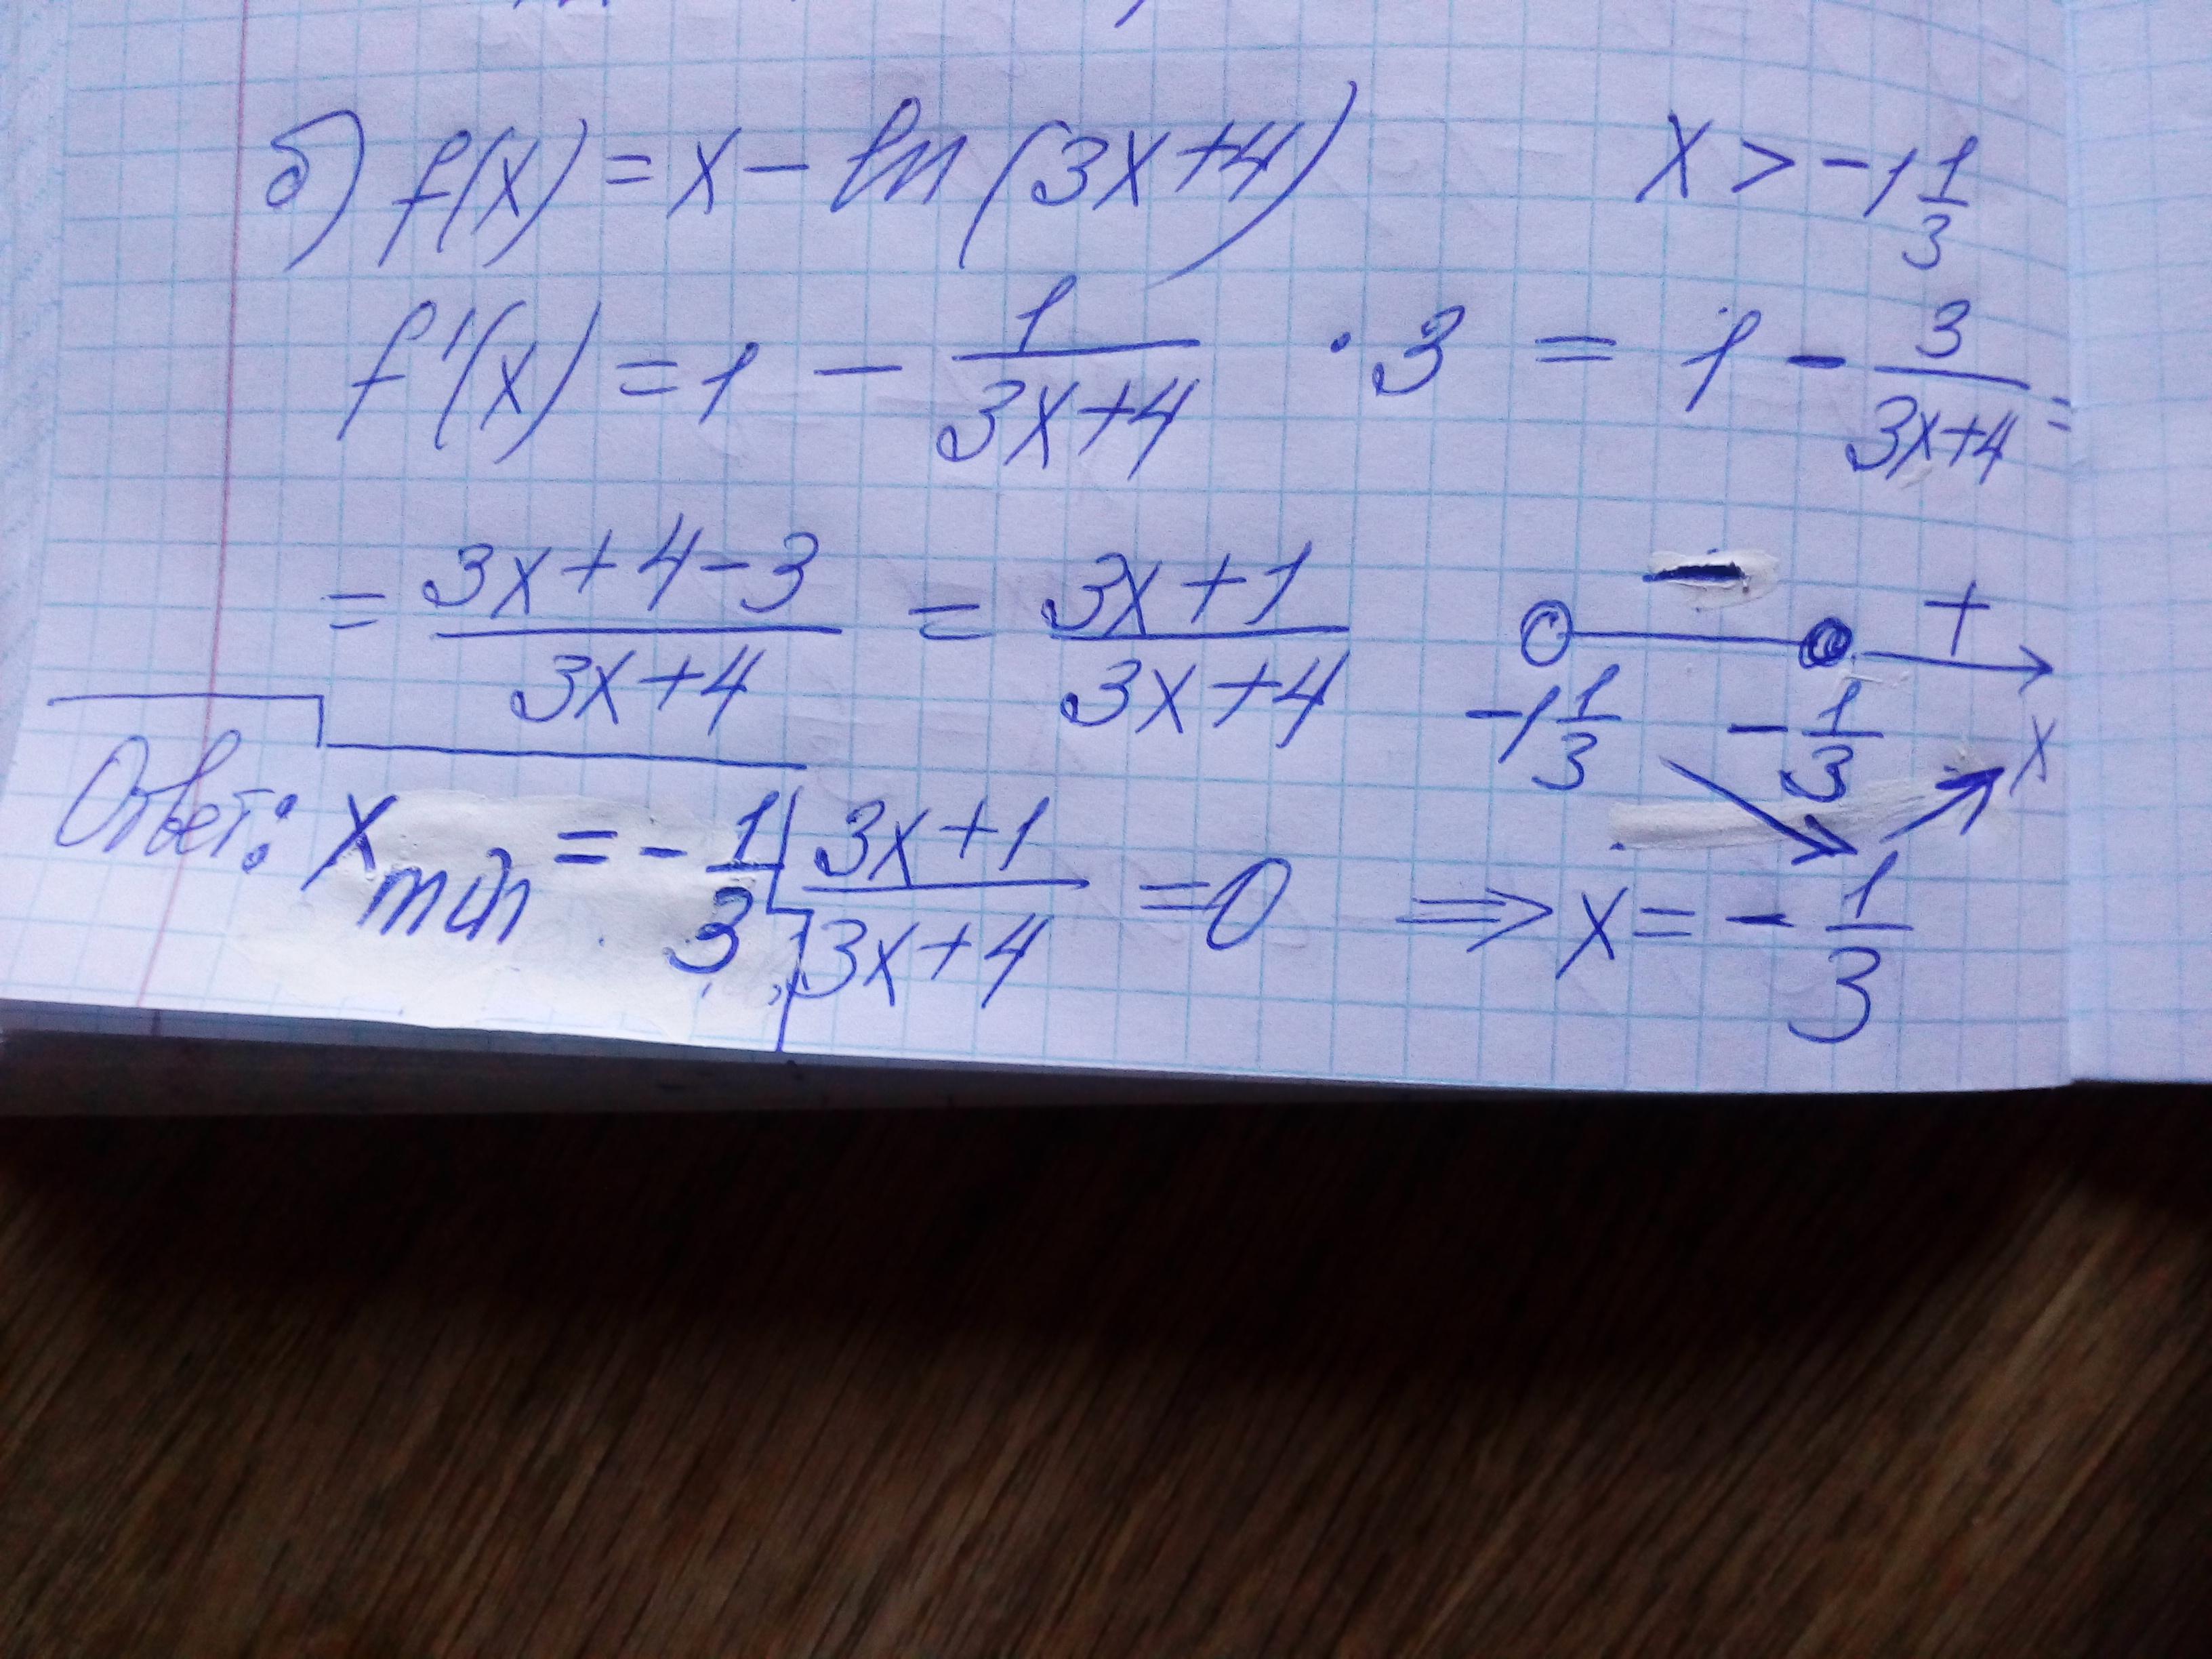 б) f(x) = x - ln(3x+4)    x > -1 1/3
f'(x) = 1 - 1/(3x+4) · 3 = 1 - 3/(3x+4) =
= (3x+4-3)/(3x+4) = (3x+1)/(3x+4)    - +
-1 1/3    -1/3    x
Ответ: x min = -1/3    (3x+1)/(3x+4) = 0 ⇒ x = -1/3